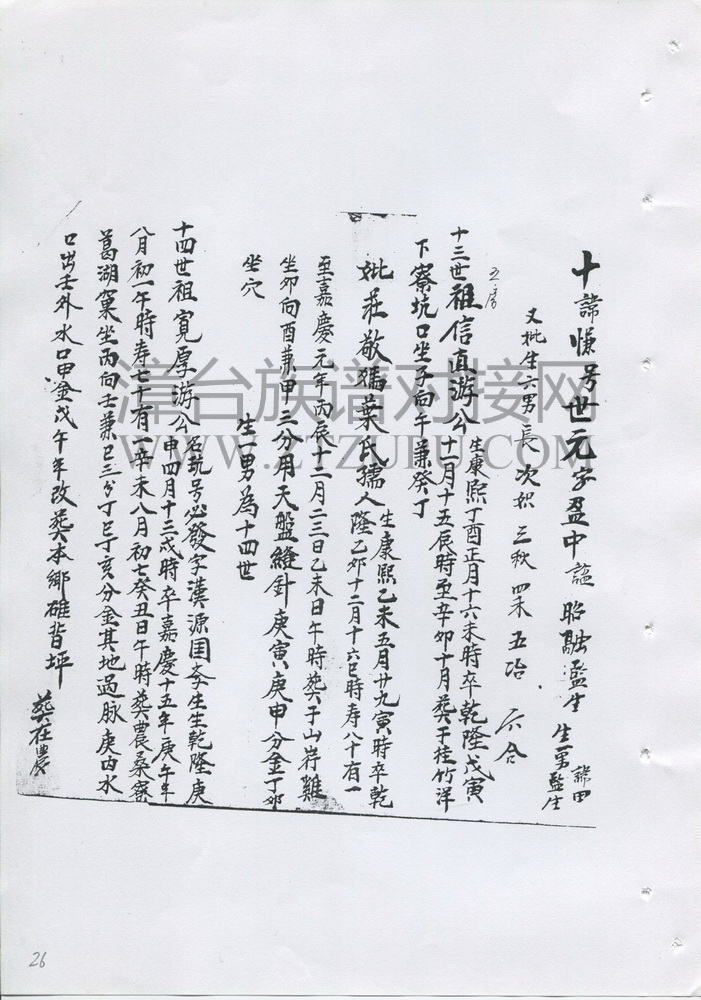 十諱慊号世元字盈中謚昭融監生生一男監生諱田
又批生六男長次炽三秋四耒五治六合
五房
十三世祖信直游公生康熙丁酉正月十六未時卒乾隆戊寅十一月十五辰時至辛卯十月葬于桂竹洋
下寮坑口坐子向午兼癸丁
妣莊敬孺葉氏孺人生康熙乙未五月廿九寅時卒乾隆乙卯十二月十六巳時寿八十有一
至嘉慶元年丙辰十二月二三日乙未日午時葬于山岢雞
坐卯向酉兼甲三分用天盤縫針庚寅庚申分金丁卯
坐穴
生一男為十四世
十四世祖寬厚游公名 号必發字漢源国斈生生乾隆庚申四月十三戌時卒嘉慶十五年庚午年
八月初一午時寿七十有一辛未八月初七癸丑日午時葬農桑寮
葛湖窠坐丙向壬兼巳三分丁巳丁亥分金其地過脉庚内水
口出壬外水口甲金戊午年改葬本鄉碓背坪
葬在農
津台族谱对接网
WWW.ZTZUPU.COM
26